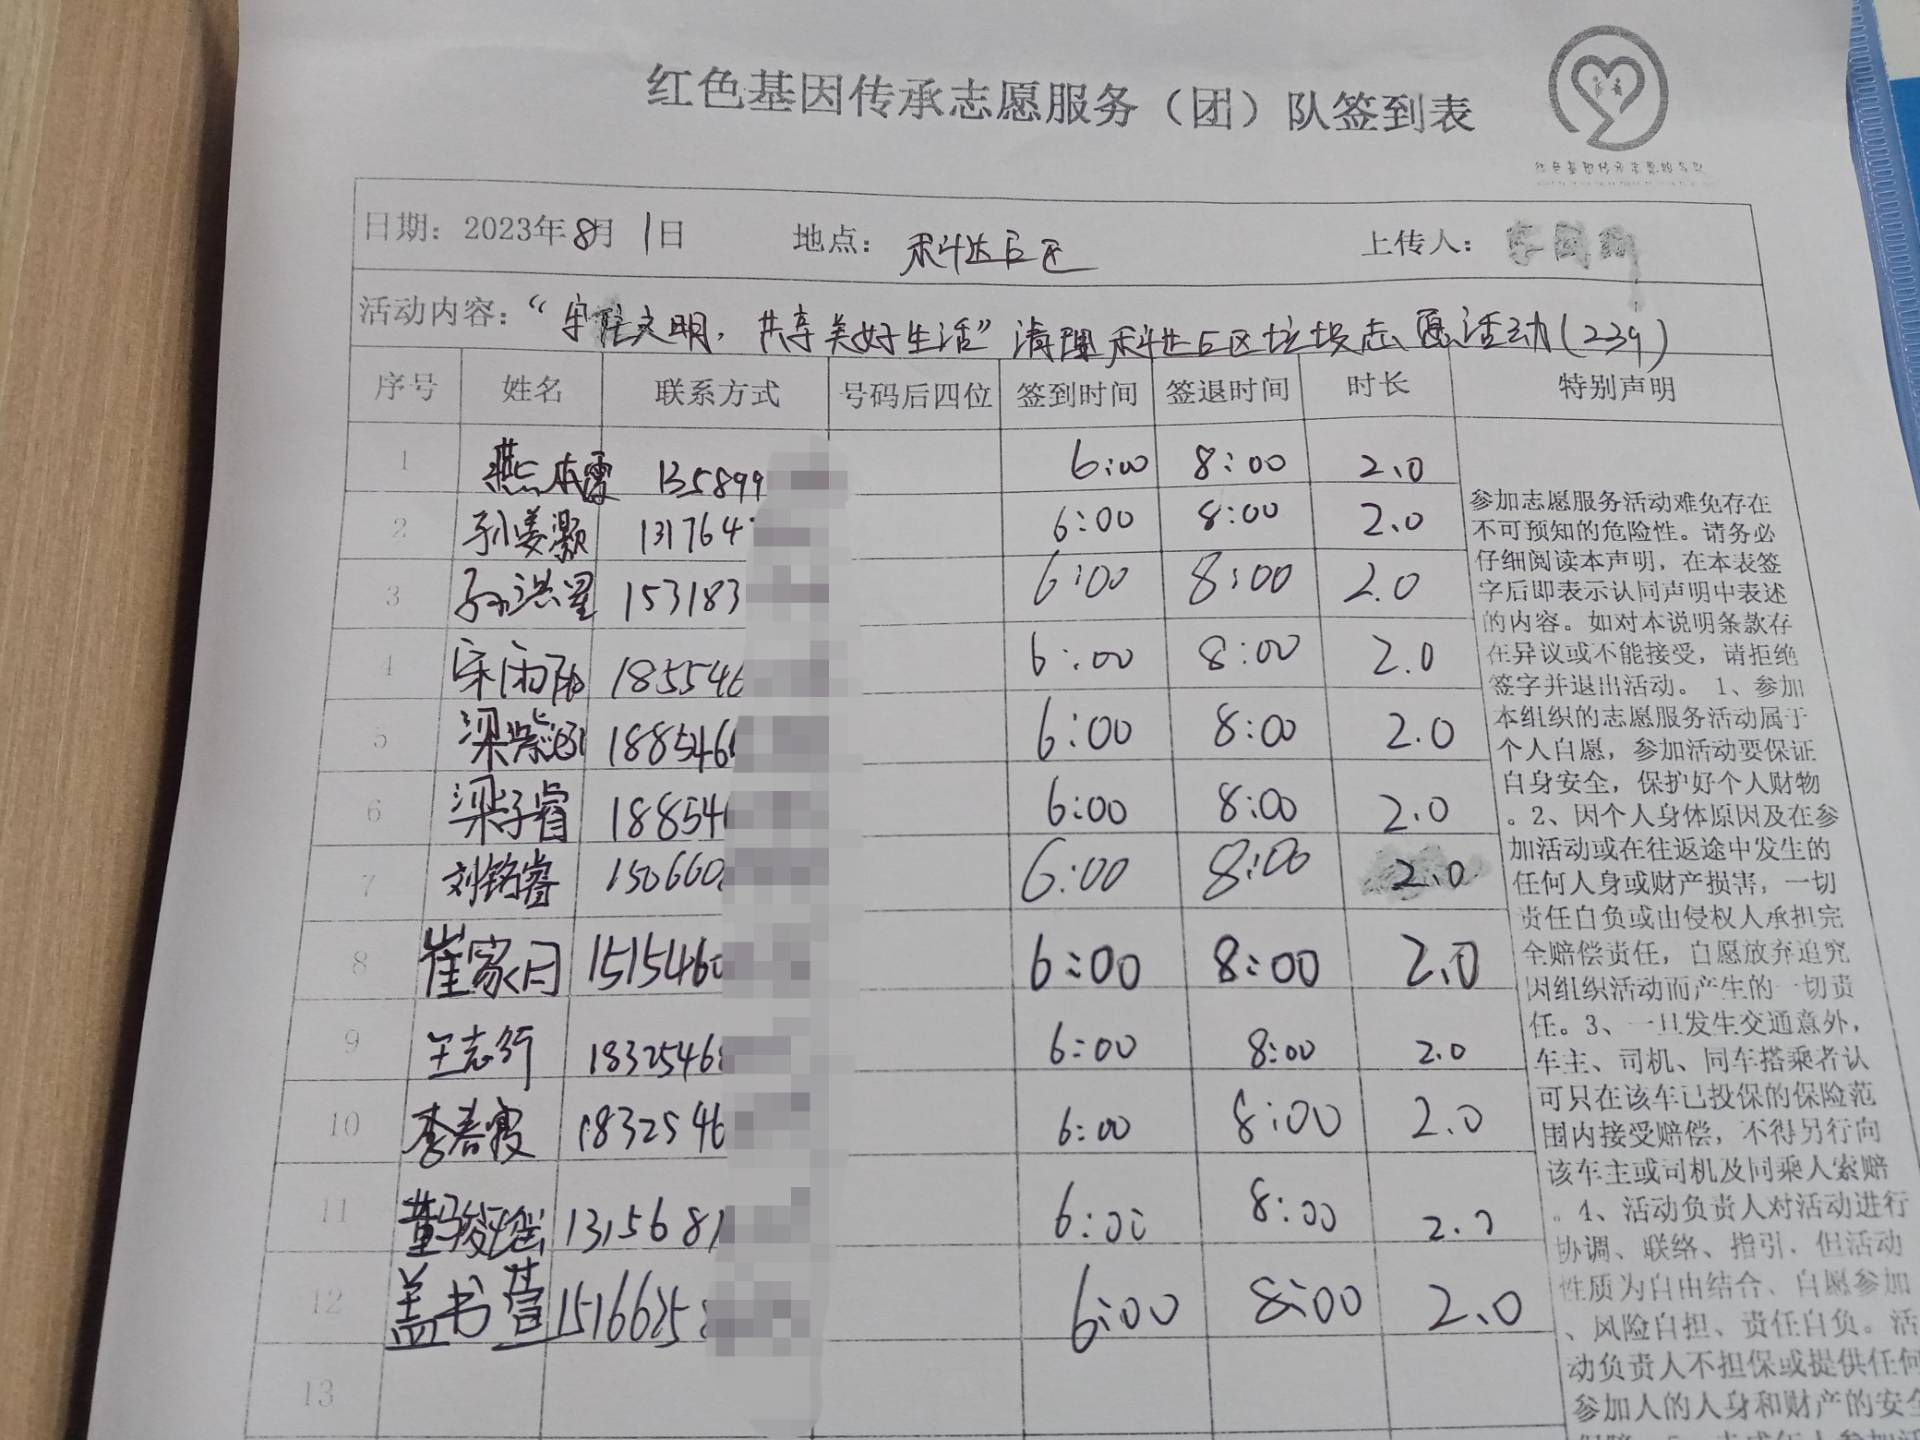 红色基因传承志愿服务（团）队签到表
红色基因传承志愿服务队
日期：2023年8月1日 地点：禾斗达B区 上传人：
活动内容：“守护文明，共享美好生活”清理科达B区垃圾志愿活动(239)
序号 姓名 联系方式 号码后四位 签到时间 签退时间 时长 特别声明
1 135899 6:00 8:00 2.0
2 孙姜灏 131764 6:00 8:00 2.0
3 孙洪星 153183 6:00 8:00 2.0
4 宋雨 185546 6:00 8:00 2.0
5 梁紫涵 1885460 6:00 8:00 2.0
6 梁子睿 188546 6:00 8:00 2.0
7 刘铭睿 150660 6:00 8:00 2.0
8 崔家 1515460 6:00 8:00 2.0
9 王志行 18325468 6:00 8:00 2.0
10 李春霞 1832546 6:00 8:00 2.0
11 董骏瑶 1315681 6:00 8:00 2.0
12 盖书萱 1516625 6:00 8:00 2.0
13
参加志愿服务活动难免存在
不可预知的危险性。请务必
仔细阅读本声明，在本表签
字后即表示认同声明中表述
的内容。如对本说明条款存
在异议或不能接受，请拒绝
签字并退出活动。1、参加
本组织的志愿服务活动属于
个人自愿，参加活动要保证
自身安全，保护好个人财物
。2、因个人身体原因及在参
加活动或在往返途中发生的
任何人身或财产损害，一切
责任自负或由侵权人承担完
全赔偿责任，自愿放弃追究
因组织活动而产生的一切责
任。3、一旦发生交通意外，
车主、司机、同车搭乘者认
可只在该车已投保的保险范
围内接受赔偿，不得另行向
该车主或司机及同乘人索赔
。4、活动负责人对活动进行
协调、联络、指引．但活动
性质为自由结合、自愿参加
、风险自担、责任自负。活
动负责人不担保或提供任何
参加人的人身和财产的安全